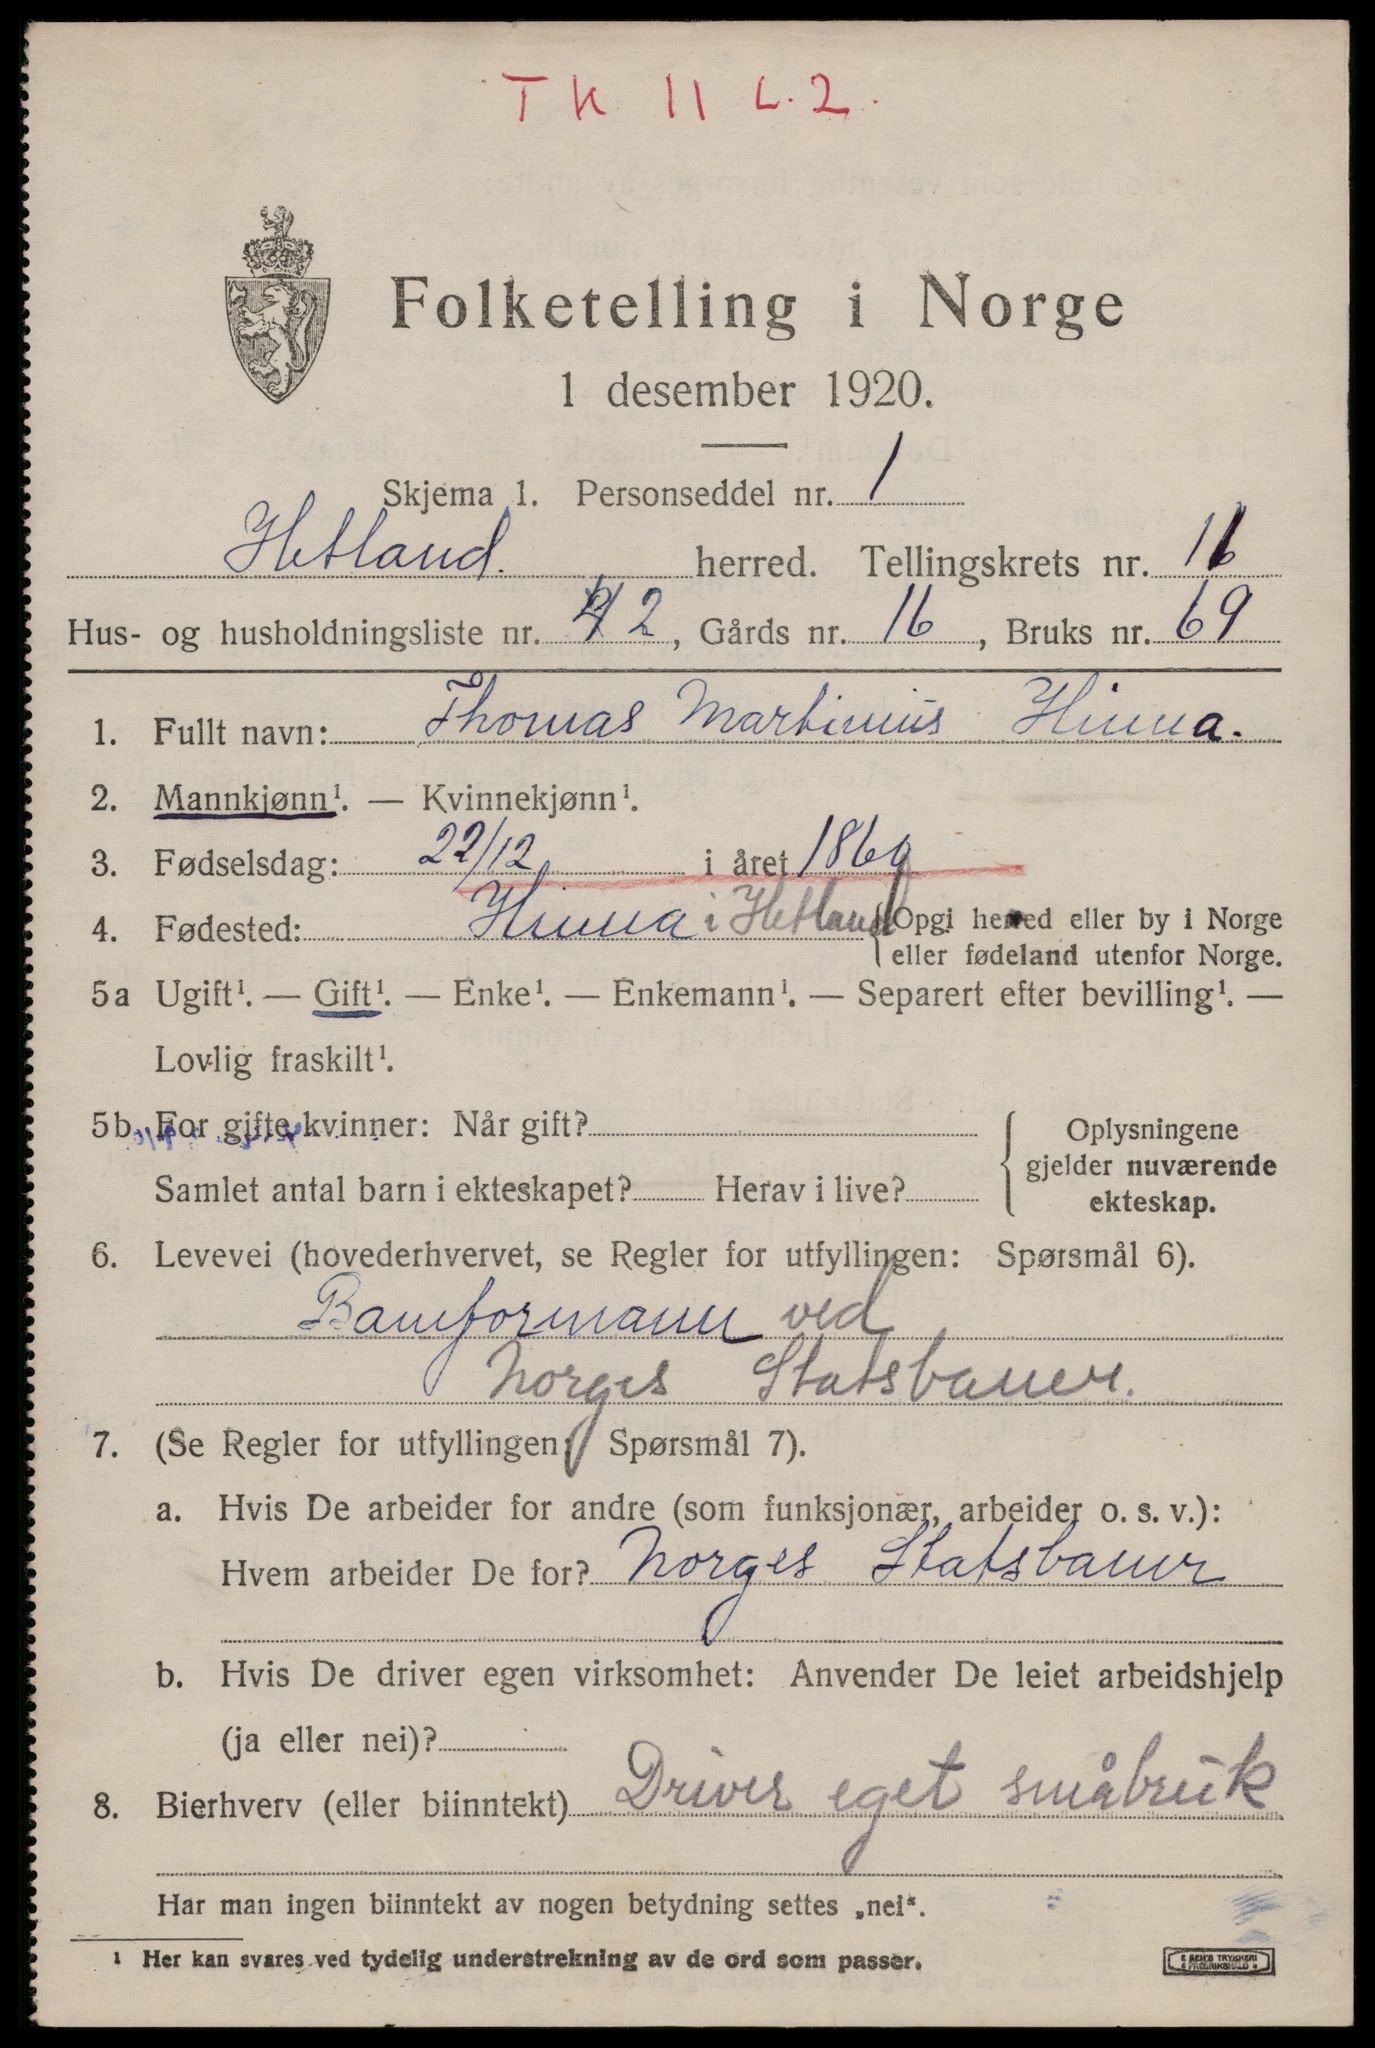 TK 11 L.2.
Folketelling i Norge
1 desember 1920.
Skjema 1. Personseddel nr. 1
Hetland. herred. Tellingskrets nr. 11
Hus- og husholdningsliste nr. 2, Gårds nr. 16, Bruks nr. 69
1. Fullt navn: Thomas Martinius Hinna.
2. Mannkjønn¹. — Kvinnekjønn¹.
3. Fødselsdag: 22/12 i året 1869
4. Fødested: Hinna i Hetland {Opgi herred eller by i Norge
eller fødeland utenfor Norge.
5a Ugift¹. — Gift¹. — Enke¹. — Enkemann¹. — Separert efter bevilling¹. —
Lovlig fraskilt¹.
5b. For gifte kvinner: Når gift?
Samlet antal barn i ekteskapet? Herav i live?
Oplysningene
gjelder nuværende
ekteskap.
6. Levevei (hovederhvervet, se Regler for utfyllingen: Spørsmål 6).
Baneformann ved
Norges Statsbaner.
7. (Se Regler for utfyllingen: Spørsmål 7).
a. Hvis De arbeider for andre (som funksjonær, arbeider o. s. v.):
Hvem arbeider De for? Norges Statsbaner
b. Hvis De driver egen virksomhet: Anvender De leiet arbeidshjelp
(ja eller nei)?
8. Bierhverv (eller biinntekt) Driver eget småbruk
Har man ingen biinntekt av nogen betydning settes „nei“.
¹ Her kan svares ved tydelig understrekning av de ord som passer.